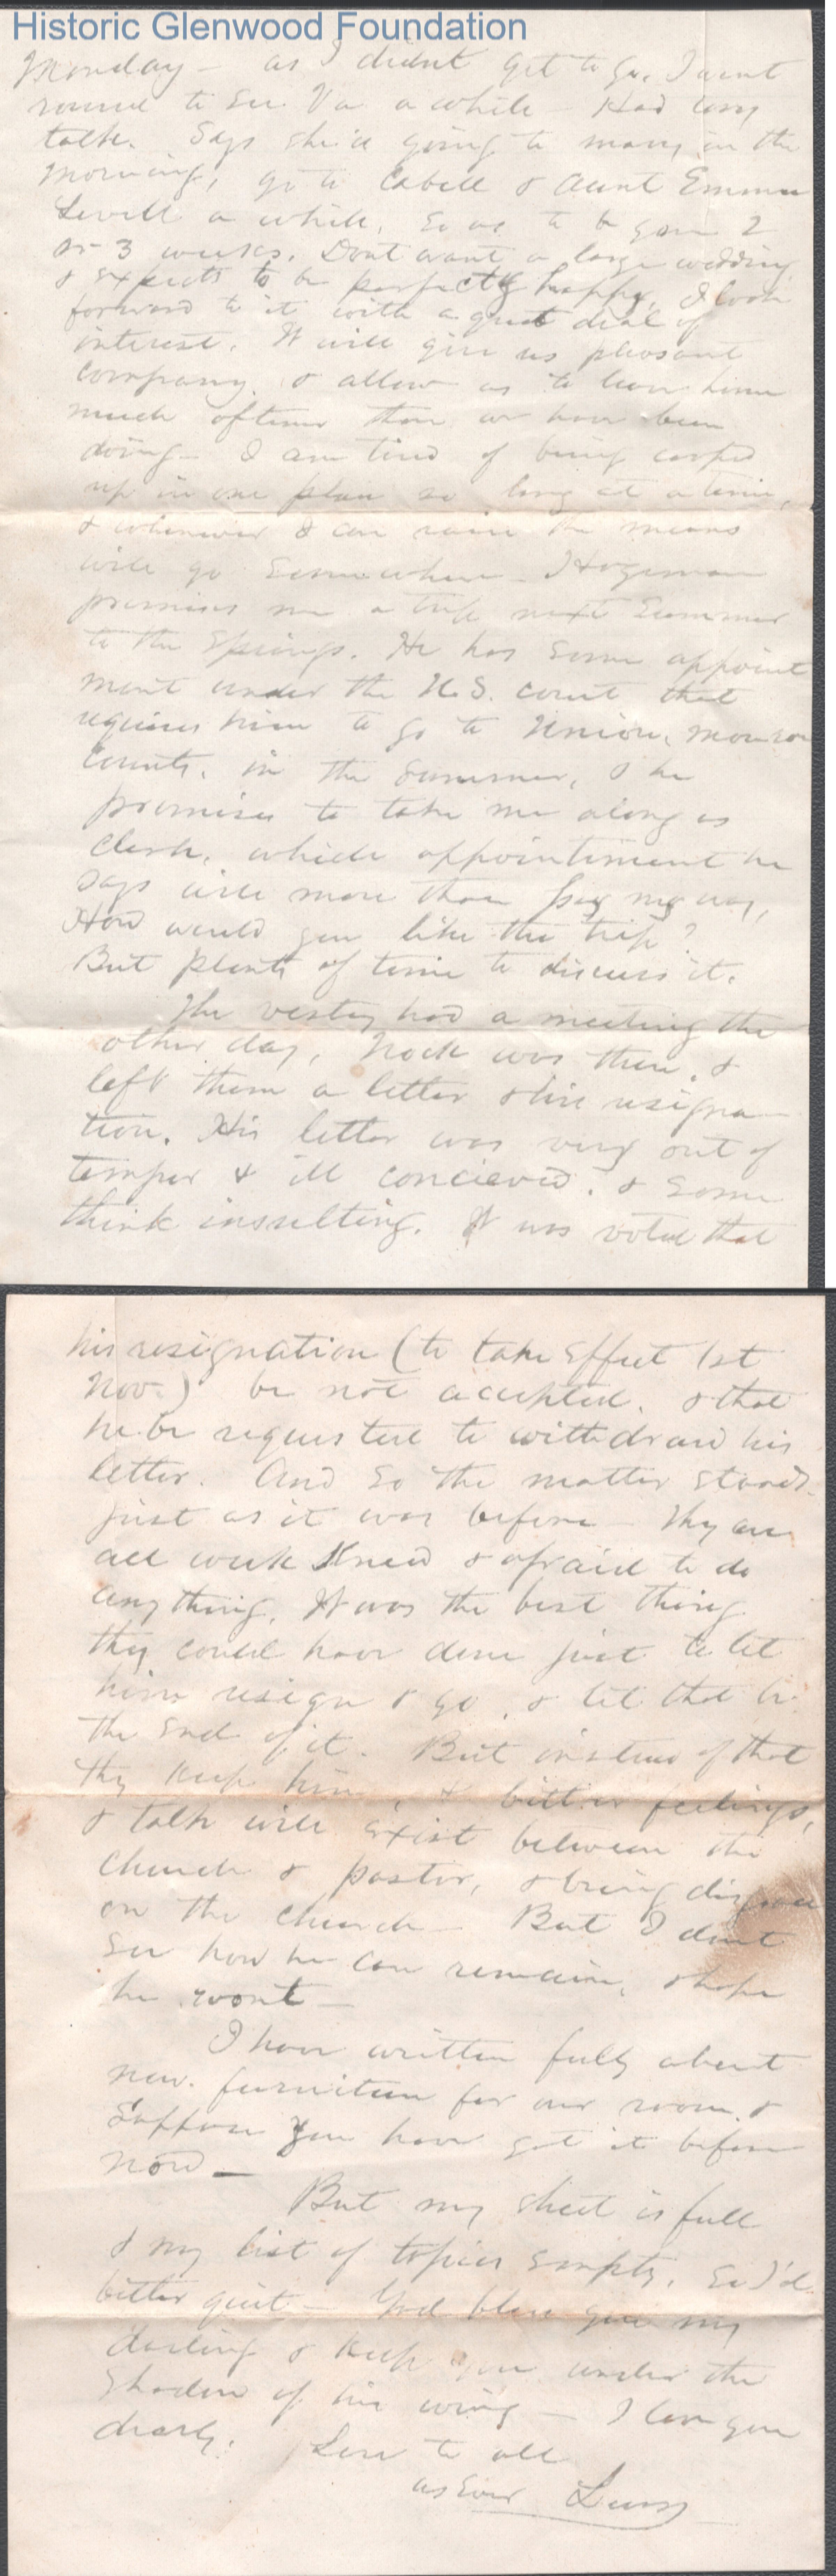 Historic Glenwood Foundation
Monday – as I didnt get to go. I went
round to see Va a while – Had long
talk. Says she'll going to marry in the
morning, go to Cabell & Aunt Emma
Lewill a while, so as to be gone 2
or 3 weeks. Dont want a large wedding
& expects to be perfectly happy, I look
forward to it with a great deal of
interest. It will give us pleasant
company, & allow us to leave home
much oftener than we have been
doing – I am tired of being cooped
up in one place so long at a time,
& whenever I can raise the means
will go somewhere – Hogeman
promises me a trip next Summer
to the Springs. He has some appoint
ment under the U.S. court that
requires him to go to Union, Monroe
County, in the Summer, & he
promises to take me along as
Clerk, which appointiment he
says will more than pay my way,
How would you like the trip?
But plenty of time to discuss it.
The vestry had a meeting the
other day, Nock was there, &
left them a letter & his resigna–
tion. His letter was very out of
temper & ill concieved. & some
think insulting. It was voted that
his resignation (to take effect 1st
Nov.) be not accepted. & that
he be requested to withdraw his
letter. And so the matter stands
just as it was before – They are
all weak Kneed & afraid to do
anything. It was the best thing
they could have done just to let
him resign & go, & let that be
the end of it. But instead of that
they keep him, & bitter feelings,
& talk will exist between the
Church & pastor, & bring disgrace
on the church – But I dont
see how he can remain, & hope
he wont –
I have written fully about
new furniture for our room &
suppose you have got it before
now –
But my sheet is full
& my list of topics empty, so I'd
better quit – God bless you my
darling & keep you under the
shadow of his wing – I love you
dearly. Love to all
as ever Lewis